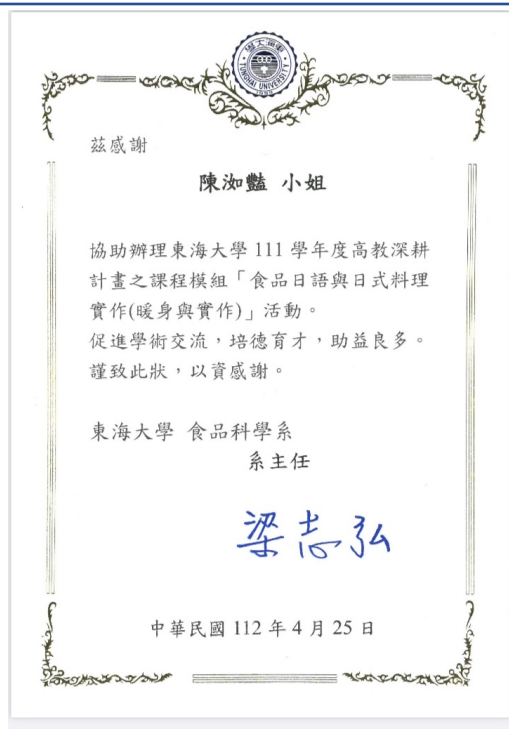 TUNGHAI UNIVERSITY
1955
茲感謝
陳洳豔 小姐
協助辦理東海大學 111 學年度高教深耕
計畫之課程模組「食品日語與日式料理
實作(暖身與實作)」活動。
促進學術交流，培德育才，助益良多。
謹致此狀，以資感謝。
東海大學 食品科學系
系主任
梁志弘
中華民國 112 年 4 月 25 日